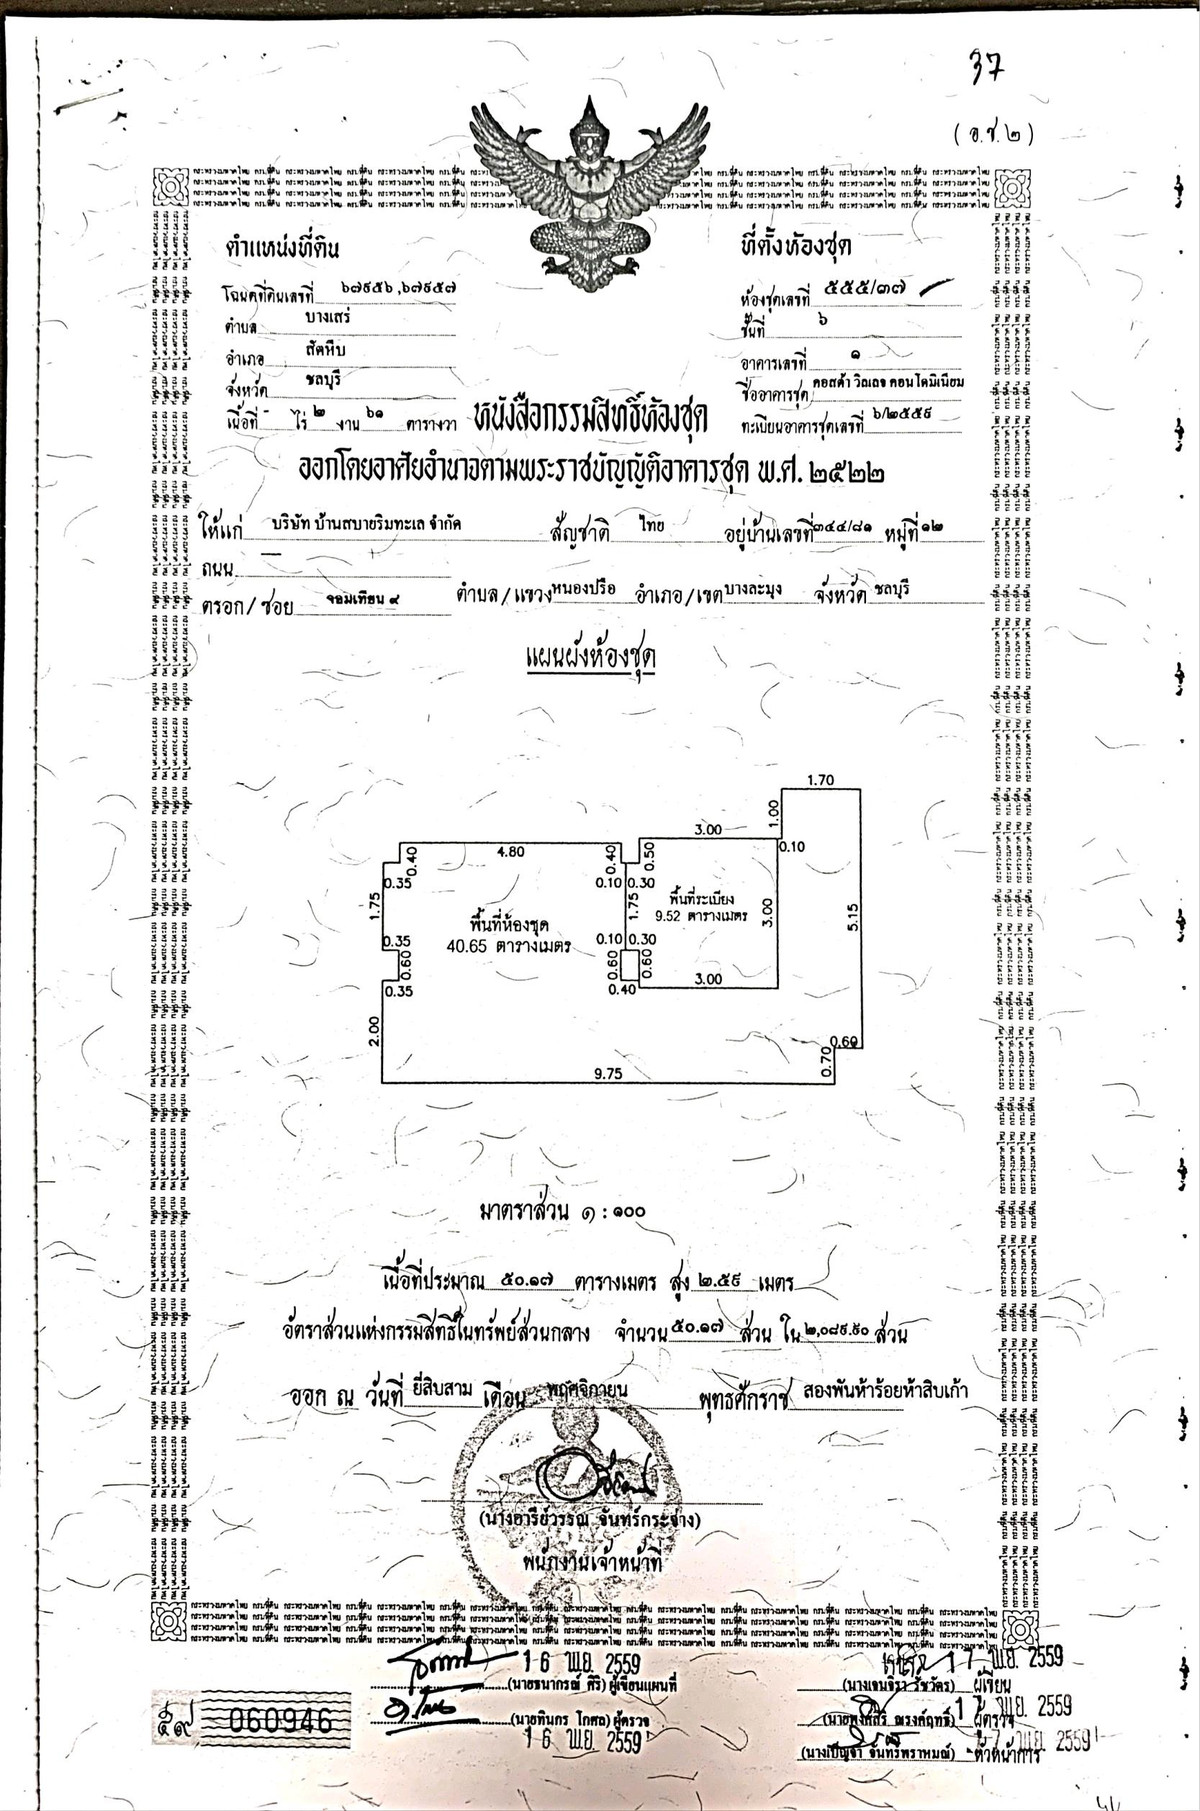 37
(อ.ช.๒)
ตำแหน่งที่ดิน
โฉนดที่ดินเลขที่ ๖๗๙๕๖,๖๗๙๕๗
ตำบล บางเสร่
อำเภอ สัตหีบ
จังหวัด ชลบุรี
เนื้อที่ - ไร่ ๒ งาน ๖๑ ตารางวา
ที่ตั้งห้องชุด
ห้องชุดเลขที่ ๕๕๕/๓๗
ชั้นที่ ๖
อาคารเลขที่ ๑
ชื่ออาคารชุด คอสต้า วิลเลจ คอนโดมิเนียม
ทะเบียนอาคารชุดเลขที่ ๖/๒๕๕๙
หนังสือกรรมสิทธิ์ห้องชุด
ออกโดยอาศัยอำนาจตามพระราชบัญญัติอาคารชุด พ.ศ. ๒๕๒๒
ให้แก่ บริษัท บ้านสบายริมทะเล จำกัด สัญชาติ ไทย อยู่บ้านเลขที่ ๓๔๔/๘๑ หมู่ที่ ๑๒
ถนน —
ตรอก/ซอย จอมเทียน ๙ ตำบล/แขวง หนองปรือ อำเภอ/เขต บางละมุง จังหวัด ชลบุรี
แผนผังห้องชุด
1.70
1.00
3.00
0.10
4.80
0.40
0.40
0.50
0.35
0.10
0.30
1.75
1.75
พื้นที่ห้องชุด
40.65 ตารางเมตร
พื้นที่ระเบียง
9.52 ตารางเมตร
3.00
5.15
0.35
0.10
0.30
0.60
0.60
0.60
0.35
0.40
3.00
2.00
9.75
0.70
0.60
มาตราส่วน ๑ : ๑๐๐
เนื้อที่ประมาณ ๕๐.๑๗ ตารางเมตร สูง ๒.๕๙ เมตร
อัตราส่วนแห่งกรรมสิทธิ์ในทรัพย์ส่วนกลาง จำนวน ๕๐.๑๗ ส่วน ใน ๒,๐๘๙.๙๐ ส่วน
ออก ณ วันที่ ยี่สิบสาม เดือน พฤศจิกายน พุทธศักราช สองพันห้าร้อยห้าสิบเก้า
(นางอารีย์วรรณ จันทร์กระจ่าง)
พนักงานเจ้าหน้าที่
16 พ.ย. 2559
(นายธนากรณ์ ศิริ) ผู้เขียนแผนที่
(นายทินกร โกศล) ผู้ตรวจ
16 พ.ย. 2559
17 พ.ย. 2559
(นางเจนจิรา รัชวัตร) ผู้เขียน
17 พ.ย. 2559
(นายพงศ์สิริ ณรงค์ฤทธิ์) ผู้ตรวจ
17 พ.ย. 2559
(นางเบ็ญจา จันทร์พราหมณ์) หัวหน้าการ
๕๙ 060946